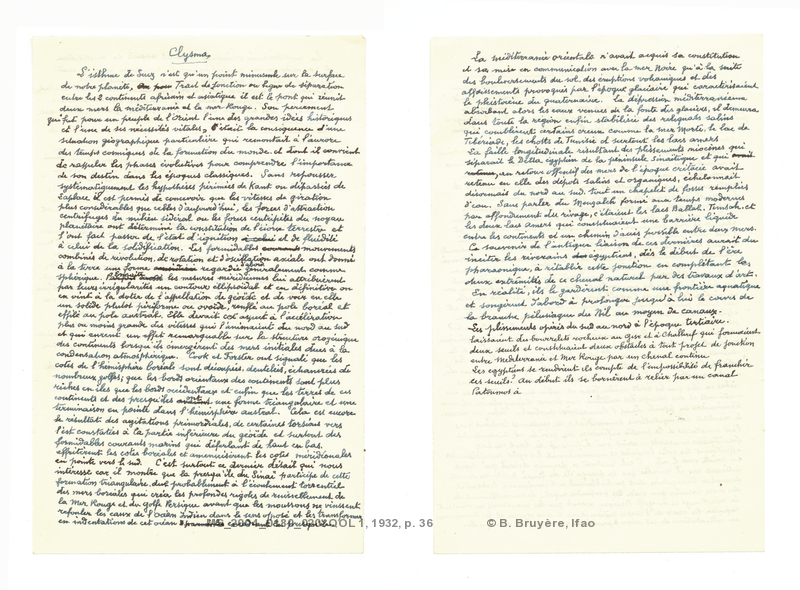 Clysma
L'isthme de Suez n'est qu'un point minuscule sur la surface
de notre planète, Trait de jonction ou ligne de séparation
entre les 2 continents africain et asiatique il est le pont qui réunit
deux mers la méditerranée et la mer Rouge. Son percement
qui fut pour un peuple de l'Orient l'une des grandes idées historiques
et l'une de ses nécessités vitales, était la conséquence d'une
situation géographique particulière qui remontait à l'aurore
des temps cosmiques et la formation du monde. et dont il convient
de rappeler les phases évolutives pour comprendre l'importance
de son destin dans les époques classiques. Sans repousser
systématiquement les hypothèses périmées de Kant ou dépassées de
Laplace, il est permis de concevoir que les vitesses de giration
plus considérables que celles d'aujourd'hui, les forces d'attraction
centrifuges du milieu sidéral ou les forces centripètes du noyau
planétaire ont déterminé la constitution de l'écorce terrestre et
l'ont fait passer de l'état d'ignition et de fluidité
à celui de la solidification. Les formidables mouvements
combinés de révolution, de rotation et d'oscillation axiale ont donné
à la terre une forme regardée d'abord généralement comme
sphérique. les mesures méridiennes lui attribuèrent
par leurs irrégularités un contour ellipsoïdal et en définitive on
en vint à la doter de l'appellation de géoïde et de voir en elle
un solide plutôt piriforme ou ovoïde, renflé au pole boréal et
effilé au pole austral. Elle devrait cet aspect à l'accélération
plus ou moins grande des vitesses qui l'animaient du nord au sud
et qui eurent un effet remarquable sur la structure orogénique
des continents lorsqu'ils émergèrent des mers initiales dues à la
condensation atmosphérique. Cook et Forster ont signalé que les
cotes de l'hémisphère boréal sont découpées, dentelées, échancrées de
nombreux golfes; que les bords orientaux des continents sont plus
riches en îles que les bords occidentaux et enfin que les terres de ces
continents et des presqu'îles ont une forme triangulaire et une
terminaison en pointe dans l'hémisphère austral. Cela est encore
le résultat des agitations primordiales, de certaines torsions vers
l'est constatées à la partie inférieure du géoïde et surtout des
formidables courants marins qui déferlant de haut en bas,
effritèrent les cotes boréales et amenuisèrent les cotes méridionales
en pointe vers le sud. C'est surtout ce dernier détail qui nous
intéresse car il montre que la presqu'île du Sinaï participe de cette
formation triangulaire due probablement à l'écoulement torrentiel
des mers boréales qui créa les profondes rigoles de ruissellement de
la Mer Rouge et du golfe Persique avant que les moussons ne vinssent
refouler les eaux de l'océan Indien dans le sens opposé et les transformer
en indentations de cet océan
La méditerranée orientale n'avait acquis sa constitution
et sa mise en communication avec la mer Noire qu'à la suite
des bouleversements du sol, des éruptions volcaniques et des
affaissements provoqués par l'époque glaciaire qui caractérisaient
le pleistocène du quaternaire. La dépression méditerranéenne
absorbant alors les eaux venues de la fonte des glaciers, il demeura
dans toute la région enfin stabilisée des reliquats salins
qui comblèrent certains creux comme la mer Morte, le lac de
Tibériade, les chotts de Tunisie et surtout les lacs amers
La faille longitudinale résultant des plissements miocènes qui
séparait le Delta égyptien de la péninsule Sinaïtique et qui
en retour offensif des mers de l'époque crétacée avait
retenu en elle des dépôts salins et organiques, échelonnait
désormais du nord au sud tout un chapelet de fosses remplies
d'eau. Sans parler du Menzaleh formé aux temps modernes
par affondement des rivages, c'étaient les lacs Ballah, Timsah, et
les deux lacs amers qui constituaient une barrière liquide
entre les continents et un chemin d'accès possible entre deux mers.
Le souvenir de l'antique liaison de ces dernières aurait dû
inciter les riverains égyptiens, dès le début de l'ère
pharaonique, à rétablir cette jonction en complétant les
deux extrémités de ce chenal naturel par des travaux d'art.
En réalité, ils le gardèrent comme une frontière aquatique
et songèrent d'abord à prolonger jusqu'à lui le cours de
la branche pélusiaque du Nil au moyen de canaux.
Les plissements opérés du sud au nord à l'époque tertiaire
laissaient des bourrelets rocheux au Gisr et à Challouf qui formaient
deux seuils et constituaient deux obstacles à tout projet de jonction
entre Méditerranée et Mer Rouge par un chenal continu
Les égyptiens se rendirent-ils compte de l'impossibilité de franchir
ces seuils. Au début ils se bornèrent à relier par un canal
Patoumos à
MS_2004_0180_020&QOL 1, 1932, p. 36
© B. Bruyère, Ifao